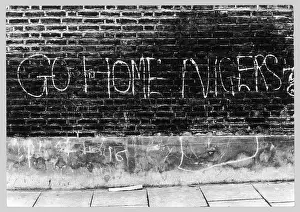 GO HOME NIGERS